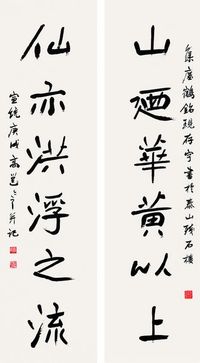 集瘗鶴銘現存字書於泰山殘石樓
山廼華黃以上
仙亦洪浮之流
宣統庚戌高邕之并記